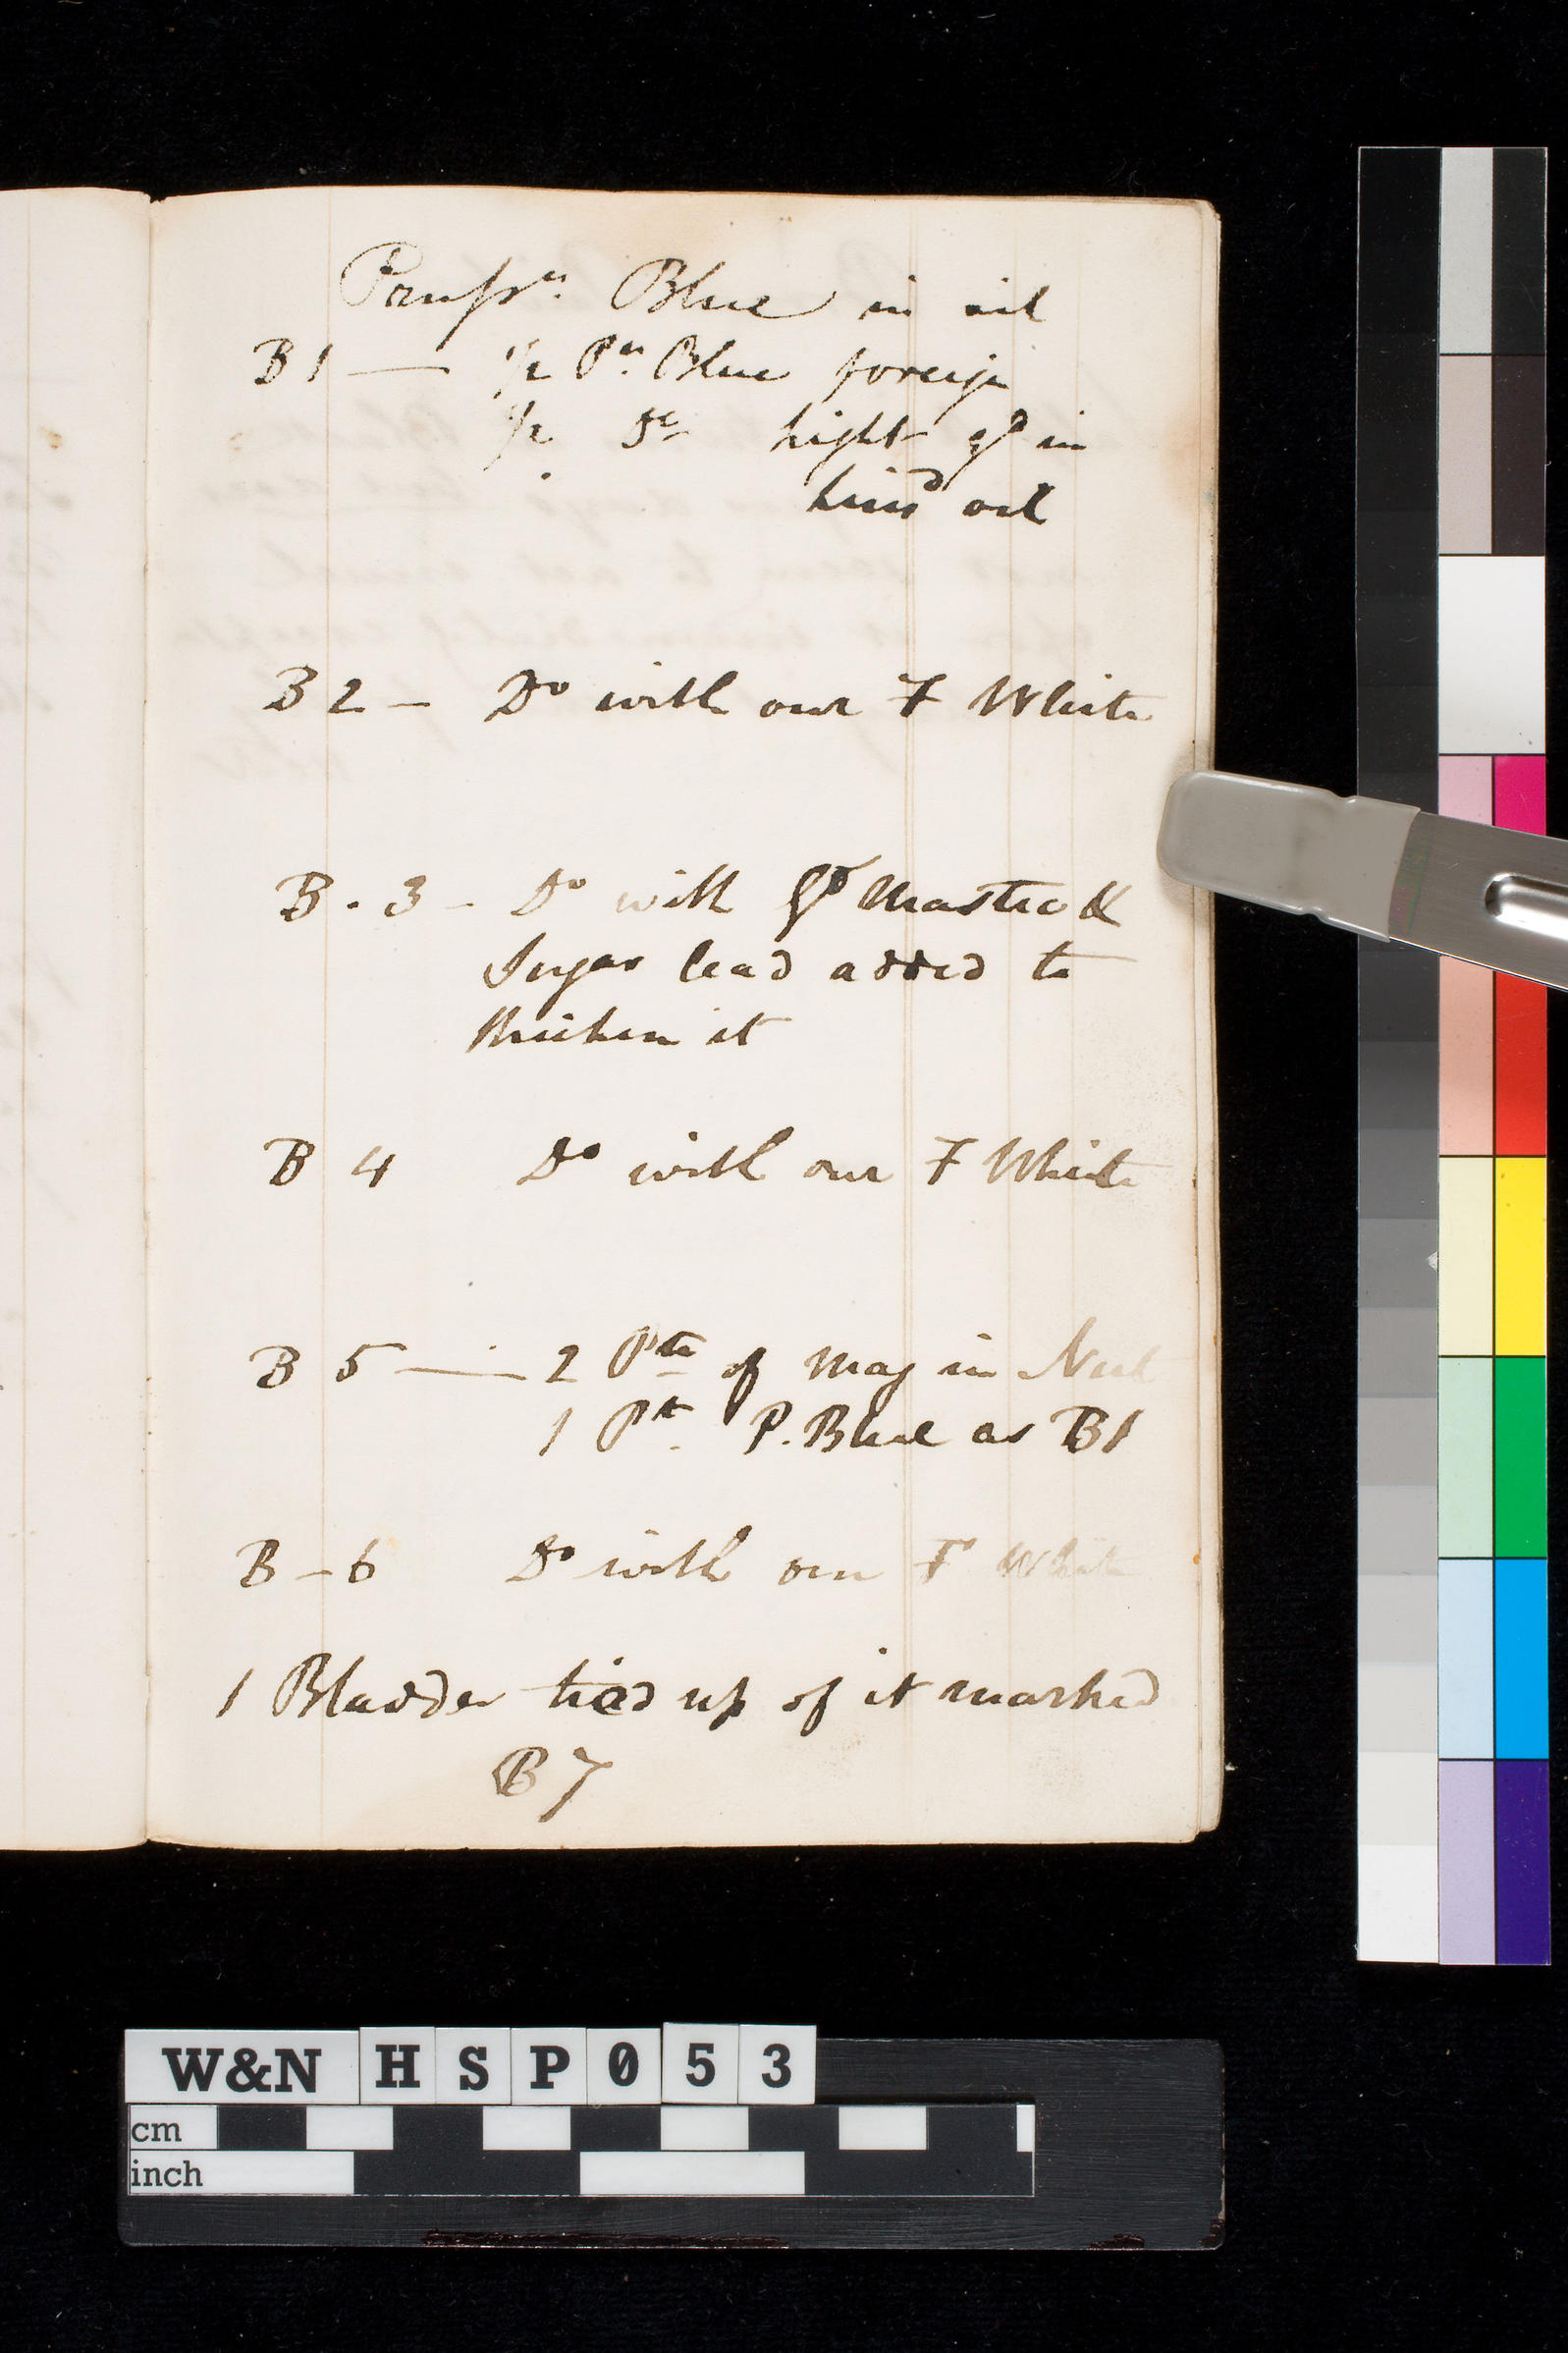 Prussn. Blue in oil
B 1 — 1/2 Pn. Blue foreign
1/2 Do light gd in
linsd oil
B 2 — Do with our F White
B . 3 — Do with Gd Mastic &
Sugar lead added to
thicken it
B 4 Do with our F White
B 5 — 2 Pts of Mag in Nut
1 Pt. P. Blue as B1
B – 6 Do with our F White
1 Bladder tied up of it marked
B 7
W&N HSP053
cm
inch